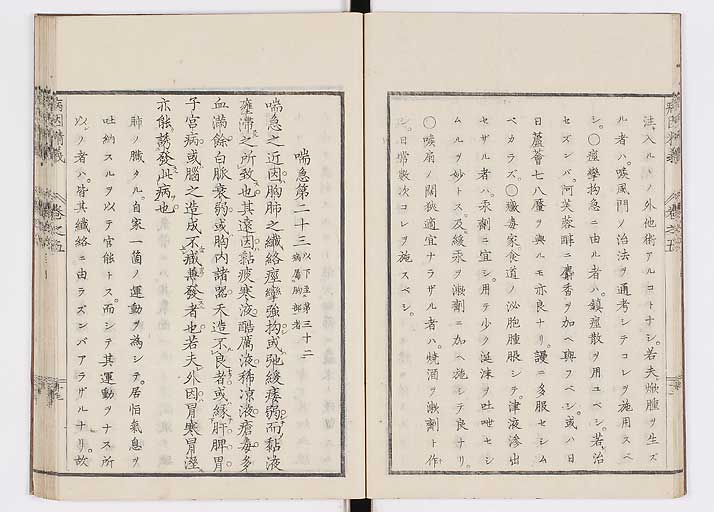 法、入ルヽノ外他術アルコトナシ。若夫焮腫ヲ生ズ
ル者ハ。咳風門ノ治法ヲ通考シテコレヲ施用スベ
シ。〇痙攣拘急ニ由ル者ハ。鎮痙散ヲ用ユベシ。若治
セズンバ。阿芙蓉酢ニ麝香ヲ加ヘ與フベシ。或ハ日
日蘆薈七八釐ヲ與ルモ亦良ナリ。謾ニ多服セシム
ベカラズ。〇黴毒家。食道ノ泌胞腫脹シテ。津液滲出
セザル者ハ。汞劑ニ宜シ。用テ少ク涎沫ヲ吐唾セシ
ムルヲ妙トス。及緩汞ヲ漱劑ニ加ヘ施シテ良ナリ。
〇咳扇ノ闊狹適宜ナラザル者ハ。焼酒ヲ漱劑ト作
シ。日常數次コレヲ施スベシ。
喘急第二十三 以下至第三十二病属胸部者
喘急之近因。胸肺之纖絡痙攣強拘。或弛緩痿弱。而黏液
壅滞之所致也。其遠因。黏痰寒液。酷厲液。稀凉液。瘡毒。多
血滿餘。白脈衰弱。或胸内諸器天造不良者。或縁肝脾胃
子宮病。或腦之造成不臧兼發者也。若夫外因。冒寒冒溼
亦能誘發此病也。
肺ノ臓タル。自家一箇ノ運動ヲ為シテ。居恒氣息ヲ
吐納スルヲ以テ官能トス。而シテ其運動ヲナス所
以ノ者ハ。皆其纖絡ニ由ラズンバアラザルナリ。故
病因精義
卷之五